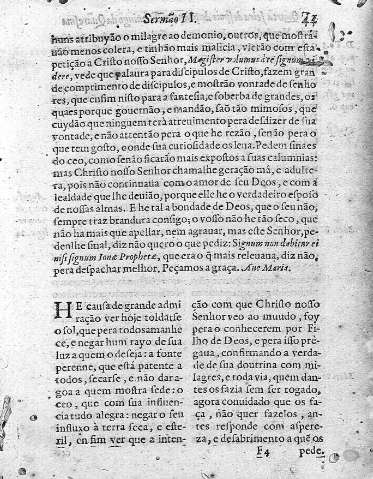 Sermão II. 44
huns atribuyão o milagre ao demonio, outros, que mostrã-
não menos colera, e tinhão mais malicia, vierão com esta
petição a Christo nosso Senhor, Magister volumus à te signum vi-
dere, vede que palaura para discipulos de Cristo, fazem gran
de comprimento de discipulos, e mostrão vontade de senho
res, que ensim nisto para a fantesia, e soberba de grandes, os
quais porque gouernão, e mandão, saõ tão mimosos, que
cuydão que ninguem terà atreuimento pera desdizer de sua
vontade, e não attentão pera o que he rezão, senão pera o
que tem gosto, onde sua curiosidade os leua. Pedem sinaes
do ceo, como senão ficarão mais expostos a suas calumnias:
mas Christo nosso Senhor chamalhe geração mà, e adulte-
ra, pois não continuaua com o amor de seu Deos, e com a
lealdade que lhe deuião, porque elle he o verdadeiro esposo
de nossas almas. E he tal a bondade de Deos, que o seu não,
sempre traz brandura consigo; o vosso não he tão seco, que
não ha mais que apellar, nem agrauar, mas este Senhor, pe-
denlhe sinal, diz não quero o que pediz: Signum non dabitur ei
nisi signum Ionæ Prophetæ, que era o q̃ mais releuaua, diz não,
pera despachar melhor. Peçamos a graça. Aue Maria.
HE causa de grande admi
ração ver hoje toldarse
o sol, que pera todos amanhe
ce, e negar hum rayo de sua
luz a quem o deseja: a fonte
perenne, que està patente a
todos, secarse, e não dar a-
goa a quem mostra sede: o
ceo, que com sua influen-
cia tudo alegra: negar o seu
influxo à terra seca, e este-
ril, en sim ver que a inten-
ção com que Christo nosso
Senhor veo ao mundo, foy
pera o conhecerem por Fi-
lho de Deos, e pera isso prè-
gaua, confirmando a verda-
de de sua doutrina com mi-
lagres, e toda via, quem dan-
tes os fazia sem ser rogado,
agora conuidado que os fa-
ça, não quer fazelos, an-
tes responde com aspere-
za, e desabrimento a quẽ os
F4 pede.